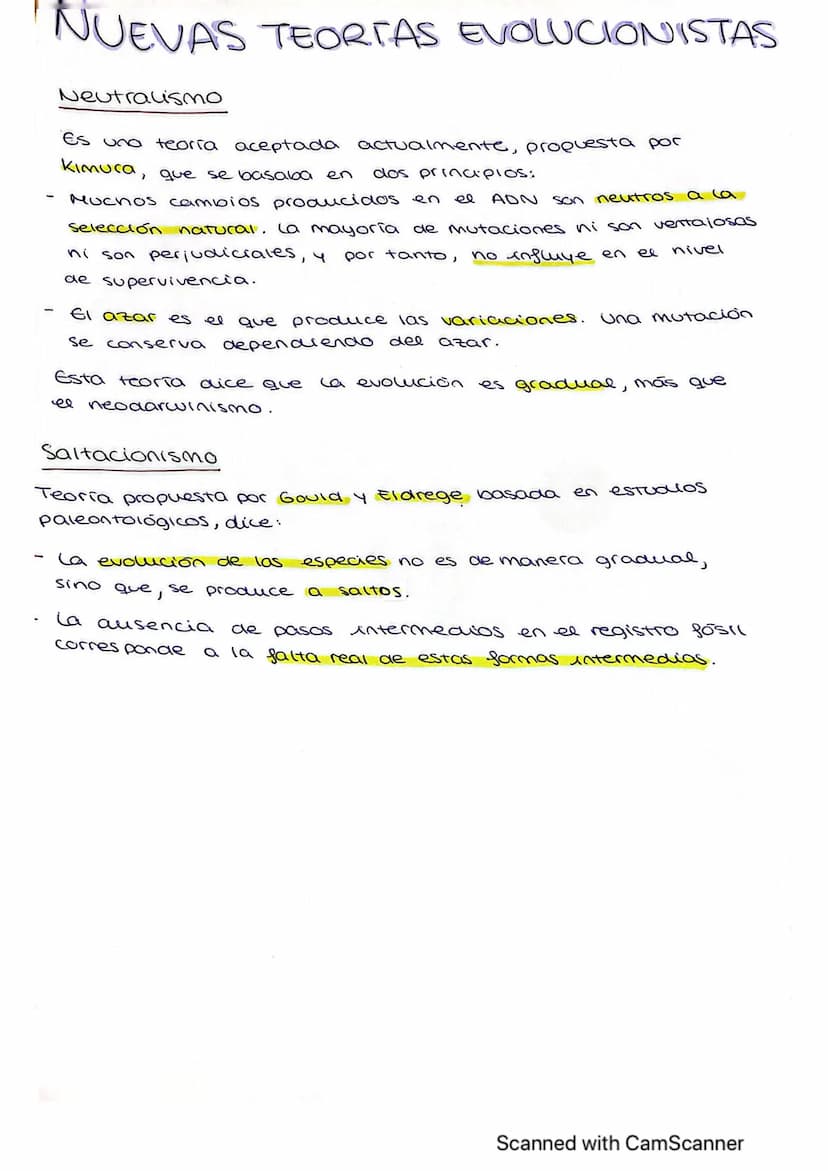 NUEVAS TEORÍAS EVOLUCIONISTAS
Neutralismo
Es una teoría aceptada actualmente, propuesta por
Kimura, que se basaba en dos principios:
- Muchos cambios producidos en el ADN son neutros a la
selección natural. La mayoría de mutaciones ni son ventajosas
ni son perjudiciales, y por tanto, no influye en el nivel
de supervivencia.
- El azar es el que produce las variaciones. Una mutación
se conserva dependiendo del azar.
Esta teoría dice que la evolución es gradual, más que
el neodarwinismo.
Saltacionismo
Teoría propuesta por Gould y Eldrege, basada en estudios
paleontológicos, dice:
- La evolución de las especies no es de manera gradual,
sino que, se produce a saltos.
· La ausencia de pasos intermedios en el registro fósil
corresponde a la falta real de estas formas intermedias.
Scanned with CamScanner